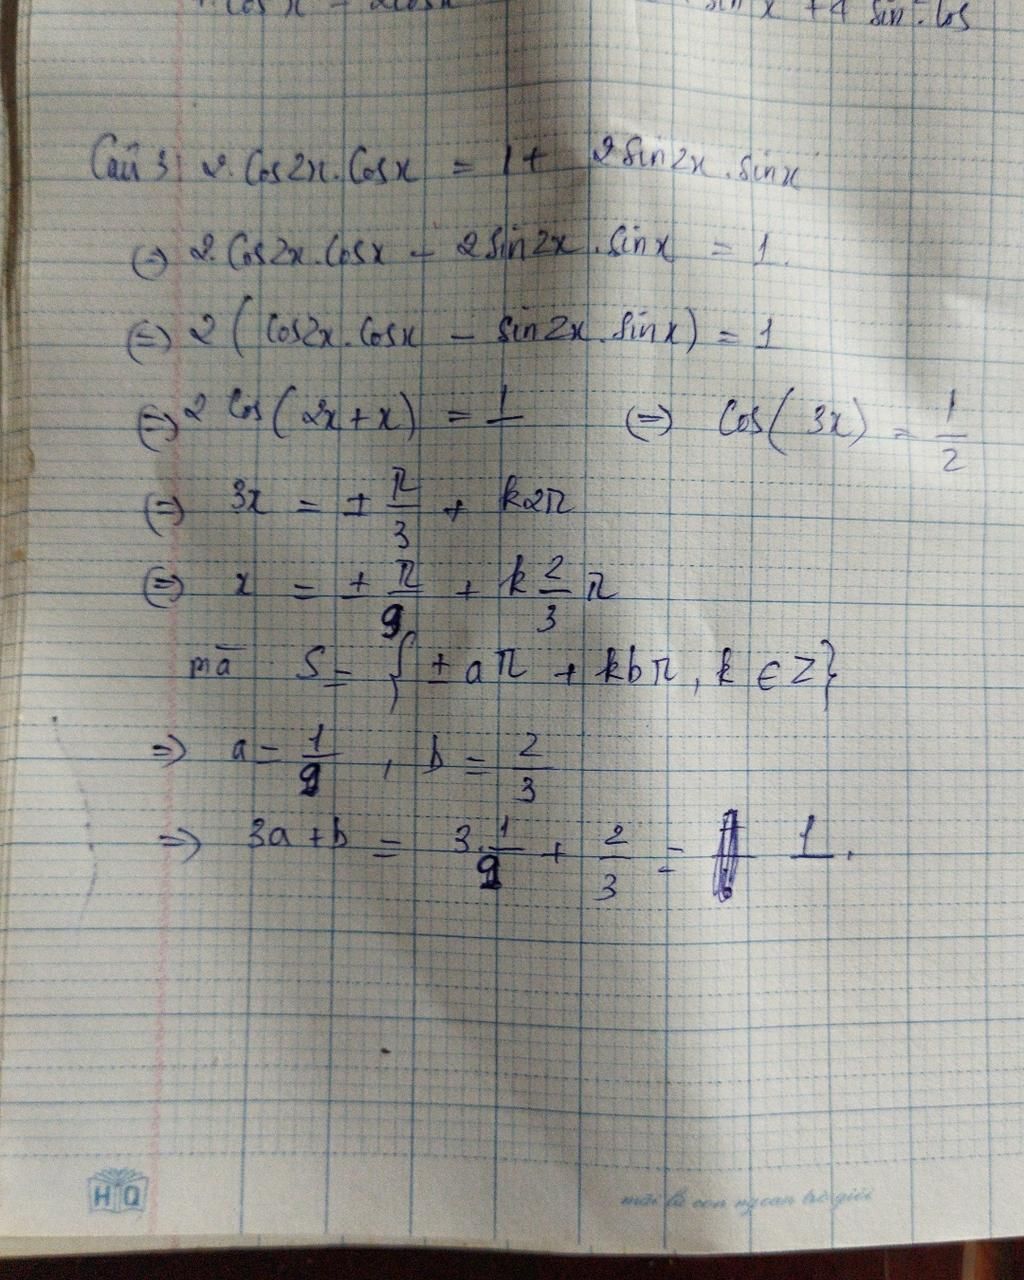 Câu 3: 2.Cos2x.Cosx = 1 + 2sin2x.sinx
(=) 2.Cos2x.Cosx - 2sin2x.sinx = 1.
(=) 2(Cos2x.Cosx - sin2x.sinx) = 1
(=) 2 Cos(2x+x) = 1 (=) Cos(3x) = 1/2
(=) 3x = ± π/3 + k2π
(=) x = ± π/9 + k 2/3 π
mà S = { ± aπ + kbπ, k ∈ Z}
=> a = 1/9 , b = 2/3
=> 3a + b = 3.1/9 + 2/3 = 1.
HQ